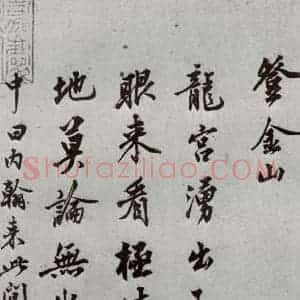 登金山
龍宮湧出
眼来看極
地莫論無
中田内翰来此間
Shufaziliao.com